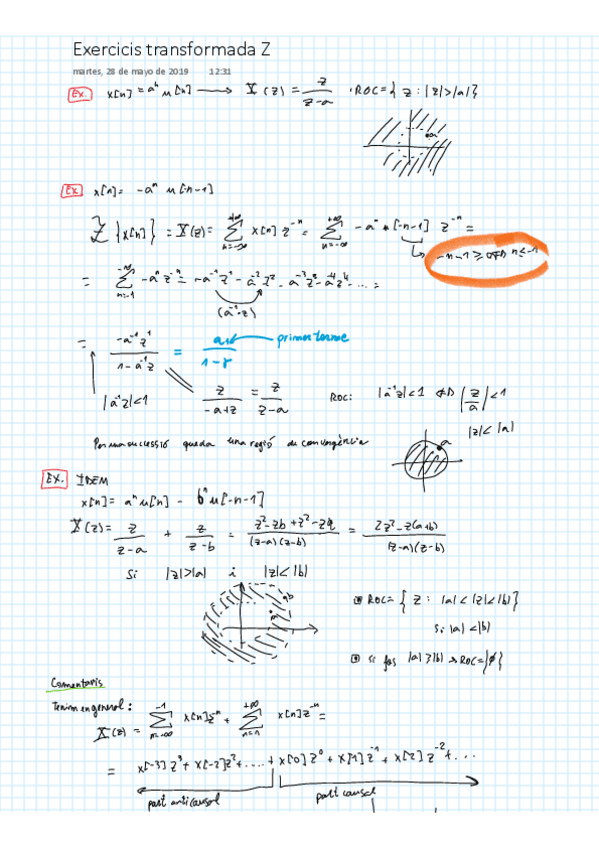 Exercicis transformada Z
martes, 28 de mayo de 2019 12:31
Ex. x[n] = aⁿ u[n] ⟶ X(z) = z/(z-a) · ROC = { z : |z|>|a| }
a
Ex x[n] = -aⁿ u[-n-1]
Z {x[n]} = X(z) = Σ_{n=-∞}^{+∞} x[n] z⁻ⁿ = Σ_{n=-∞}^{+∞} -aⁿ u[-n-1] z⁻ⁿ =
-n-1 ≥ 0 ⇔ n ≤ -1
= Σ_{n=-1}^{-∞} -aⁿ z⁻ⁿ = -a⁻¹z¹ - a⁻²z² - a⁻³z³ - a⁻⁴z⁴ - ... =
(a⁻¹·z)
= -a⁻¹z¹/(1-a⁻¹z) = a₁/(1-r) ← primer terme
|a⁻¹z|<1 z/(-a+z) = z/(z-a) ROC: |a⁻¹z|<1 ⇔ |z/a|<1
|z|<|a|
Per una successió queda una regió de convergència
a
EX. IDEM
x[n] = aⁿ u[n] - bⁿ u[-n-1]
X(z) = z/(z-a) + z/(z-b) = (z²-zb+z²-za)/((z-a)(z-b)) = (2z²-z(a+b))/((z-a)(z-b))
Si |z|>|a| i |z|<|b|
a b
ROC = { z : |a|<|z|<|b| }
si |a|<|b|
si fos |a|≥|b| ⇒ ROC={∅}
Comentaris
Tenim en general:
X(z) = Σ_{n=-∞}^{-1} x[n]z⁻ⁿ + Σ^{+∞} x[n]z⁻ⁿ =
= x[-3]z³ + x[-2]z² + .... + x[0]z⁰ + x[1]z⁻¹ + x[2]z⁻² + ...
part anticausal part causal